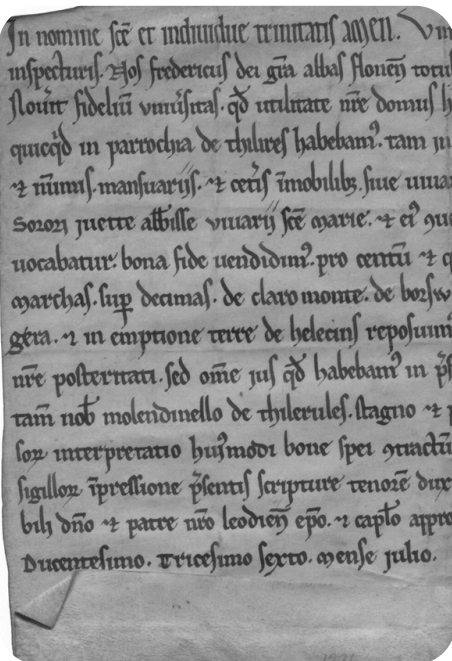 In nomine sce et individue trinitatis amen. Vni
inspecturis. Nos fredericus dei gra abbas floneñ totu
Nouit fidelium uniuersitas. qd utilitate nre domus h
quicqd in parrochia de thilires habebam'. tam in
⁊ nūmis. mansuarijs. ⁊ cet'is īmobilib;. siue uiuar
Sorori juette abb'isse viuarij sce marie. ⁊ ei'
uocabatur. bona fide uendidim'. pro centū ⁊ q
marchas. sup decimas. de claro monte. de borsw
gera. ⁊ in emptione terre de helecins reposuim'
nre posteritati. sed ome jus qd habebam' in p's
tam nob' molendinello de thilerules. stagno ⁊ p
sor interpretatio hui'modi bone spei ɔtractū
sigillor īpressione p'sentis scripture tenorē dux
bili dno ⁊ patre nro leodieñ epo. ⁊ caplo appro
Ducentesimo. Tricesimo sexto. mense julio.